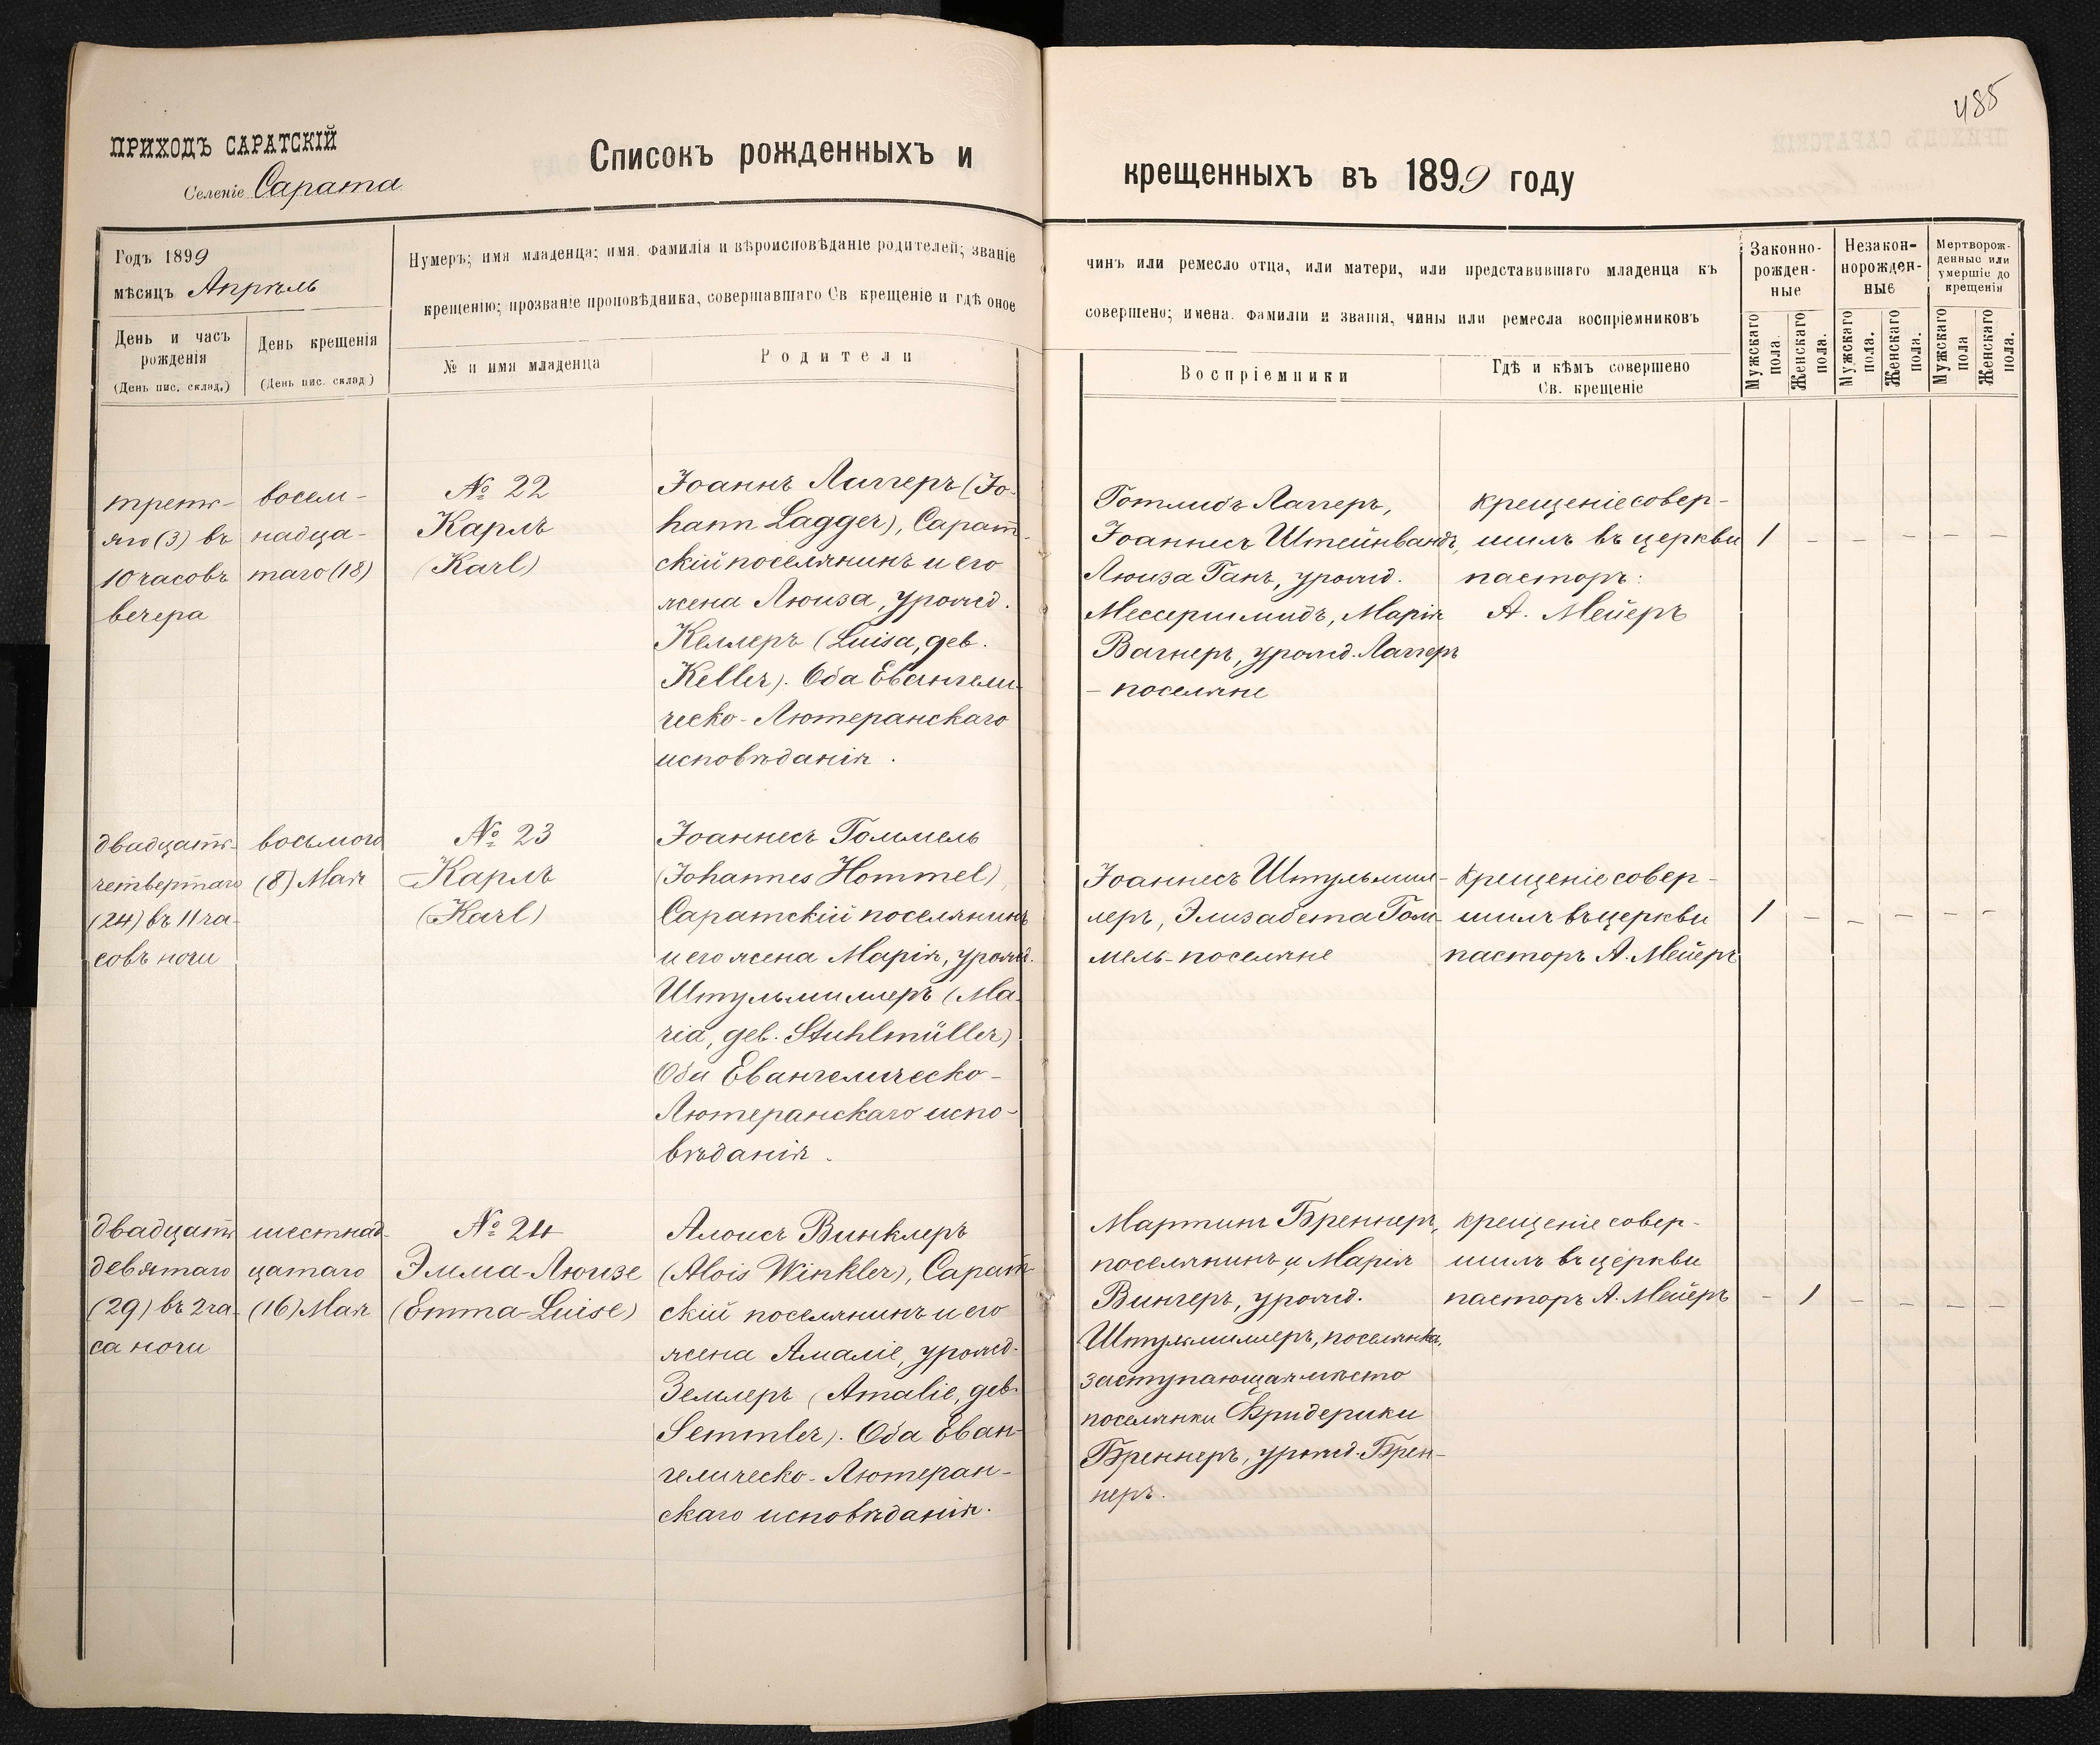 485
ПРИХОДЪ САРАТСКІЙ
Селеніе Сарата
Списокъ рожденныхъ и
крещенныхъ въ 1899 году
Годъ 1899
мѣсяцъ Апрѣль
День и часъ
рожденія
(День пис. склад.)
День крещенія
(День пис. склад.)
Нумеръ; имя младенца; имя, фамилія и вѣроисповѣданіе родителей; званіе
крещенію; прозваніе проповѣдника, совершавшаго Св. крещеніе и гдѣ оное
№ и имя младенца
Родители
чинъ или ремесло отца, или матери, или представившаго младенца къ
совершено; имена, фамиліи и званія, чины или ремесла воспріемниковъ
Воспріемники
Гдѣ и кѣмъ совершено
Св. крещеніе
Законно-
рожден-
ные
Незакон-
норожден-
ные
Мертворож-
денные или
умершіе до
крещенія
Мужскаго
пола.
Женскаго
пола.
Мужскаго
пола.
Женскаго
пола.
Мужскаго
пола
Женскаго
пола.
третья-
яго (3) въ
10 часовъ
вечера
восем-
надца-
таго (18)
№ 22
Карлъ
(Karl)
Іоаннъ Лаггеръ (Jo-
hann Lagger), Сарат-
скій поселянинъ и его
жена Люиза, урожд.
Келлеръ (Luisa, geb.
Keller). Оба Евангели-
ческо-Лютеранскаго
исповѣданія.
Готлибъ Лаггеръ,
Іоаннесъ Штейнвандъ,
Люиза Ганъ, урожд.
Мессершмидъ, Марія
Вагнеръ, урожд. Лаггеръ
- поселяне
крещеніе совер-
шилъ въ церкви
пасторъ:
А. Мейеръ
1 - - - - -
двадцать-
четвертаго
(24) въ 11 ча-
совъ ночи
восьмого
(8) Мая
№ 23
Карлъ
(Karl)
Іоаннесъ Гоммель
(Johannes Hommel),
Саратскій поселянинъ
и его жена Марія, урожд.
Штульмиллеръ (Ma-
ria, geb. Stuhlmüller)
Оба Евангелическо-
Лютеранскаго испо-
вѣданія.
Іоаннесъ Штульмил-
леръ, Элизабета Гом-
мель-поселяне
крещеніе совер-
шилъ въ церкви
пасторъ А. Мейеръ
1 - - - - -
двадцать
девятаго
(29) въ 2 ча-
са ночи
шестнад-
цатаго
(16) Мая
№ 24
Эмма-Люизе
(Emma-Luise)
Алоисъ Винклеръ
(Alois Winkler), Сарат-
скій поселянинъ и его
жена Амаліе, урожд.
Землеръ (Amalie, geb.
Semmler). Оба Еван-
гелическо-Лютеран-
скаго исповѣданія.
Мартинъ Бреннеръ,
поселянинъ и Марія
Вингеръ, урожд.
Штульмиллеръ, поселянка,
заступающая мѣсто
поселянки Фридерики
Бреннеръ, урожд. Брен-
неръ.
крещеніе совер-
шилъ въ церкви
пасторъ А. Мейеръ
- 1 - - - -